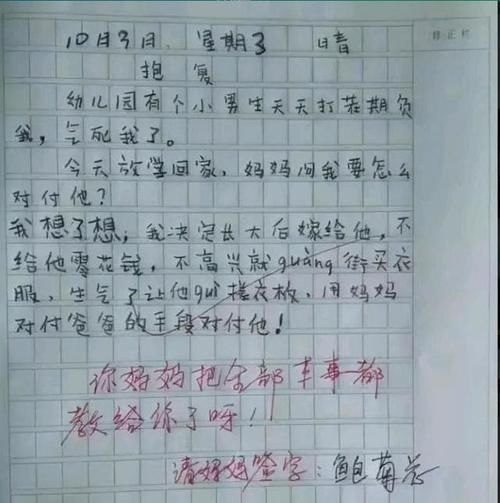 修正栏
10月3日 星期3 日晴
抱复
幼儿园有个小男生天天打茬期负
我，气死我了。
今天放学回家，妈妈问我要怎么
对付他？
我想了想，我决定长大后嫁给他，不
给他零花钱，不高兴就guàng街买衣
服，生气了让他guì搓衣板，用妈妈
对付爸爸的手段对付他！
你妈妈把全部本事都
教给你了呀！
请妈妈签字：鲍菊芯